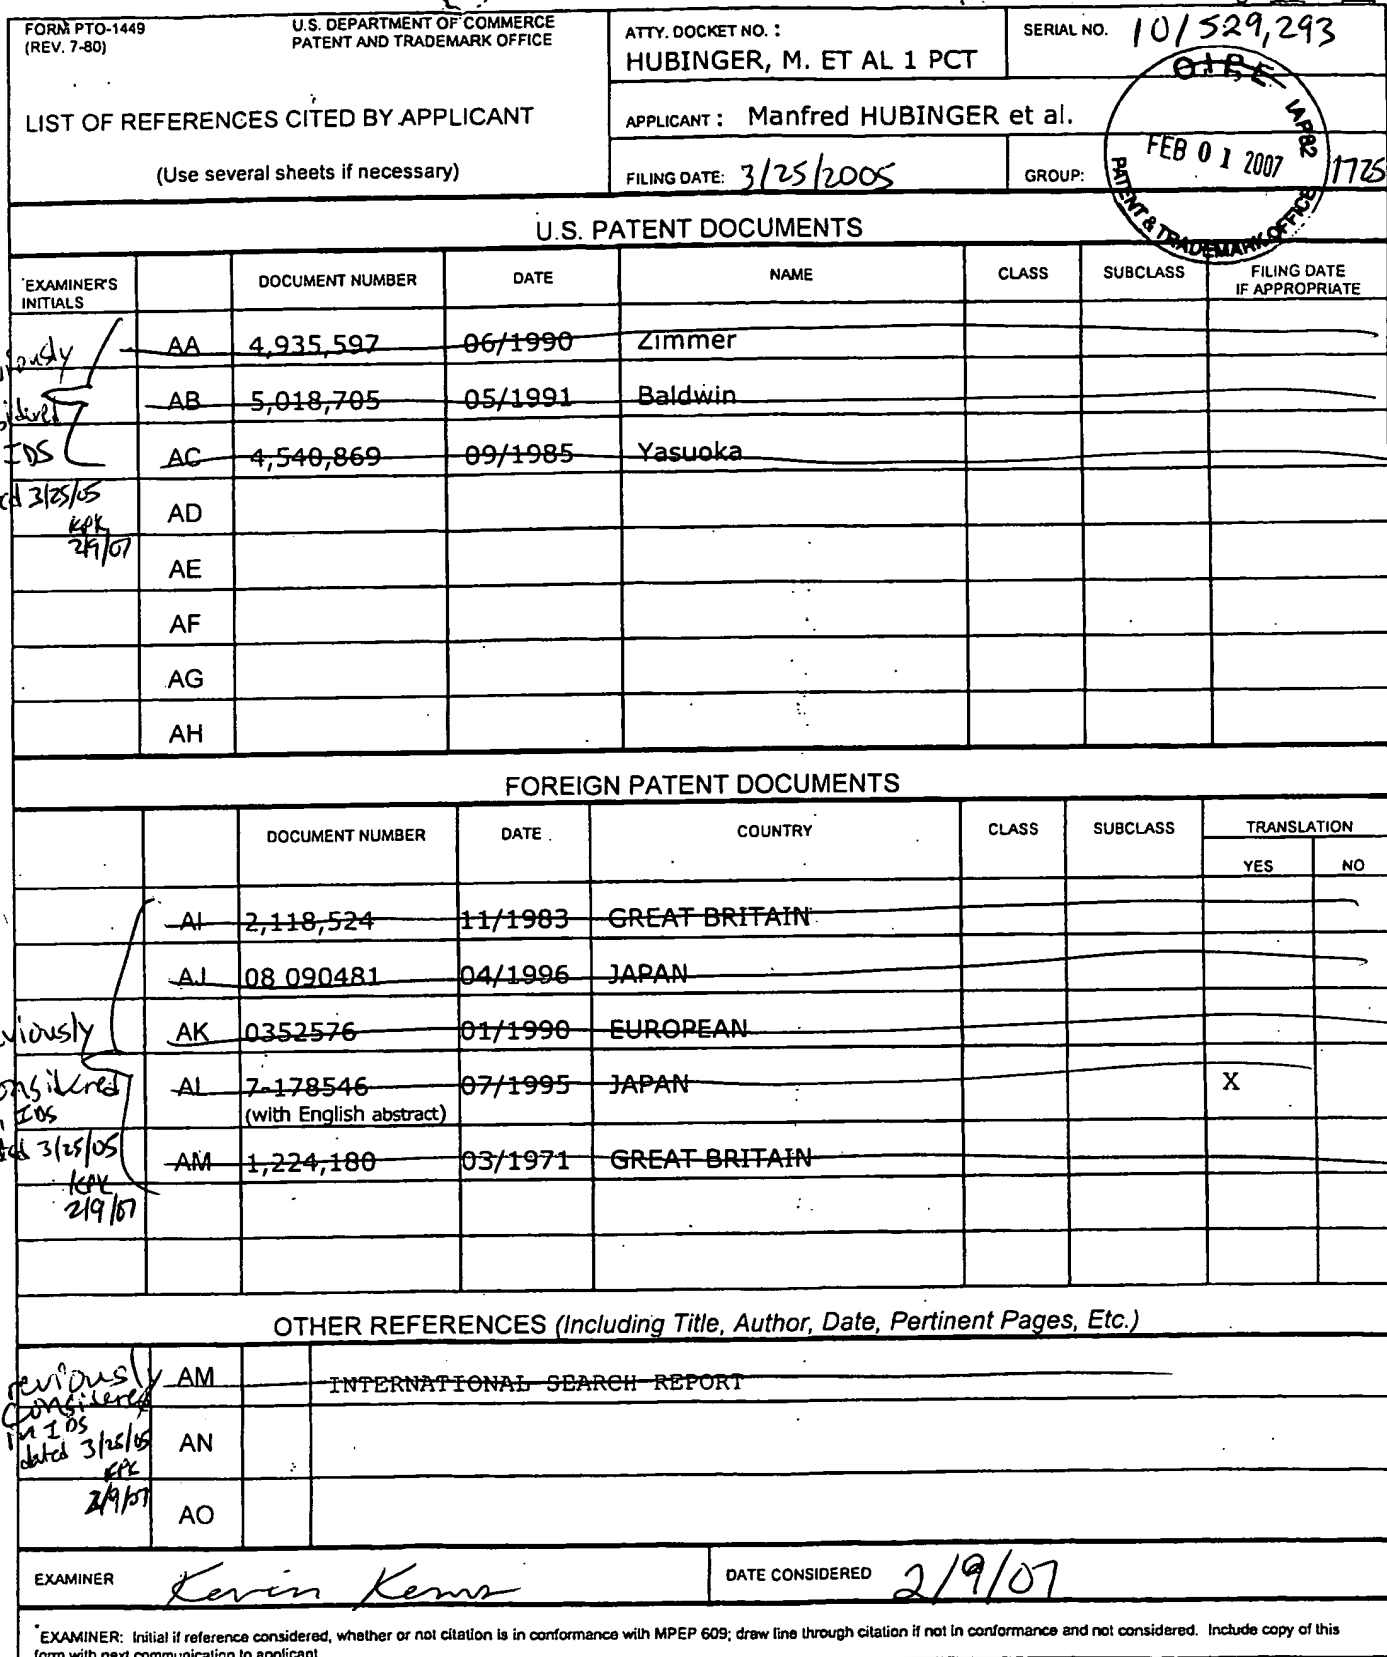 FORM PTO-1449
(REV. 7-80)
U.S. DEPARTMENT OF COMMERCE
PATENT AND TRADEMARK OFFICE
LIST OF REFERENCES CITED BY APPLICANT
(Use several sheets if necessary)
ATTY. DOCKET NO. :
HUBINGER, M. ET AL 1 PCT
SERIAL NO. 10/529,293
APPLICANT : Manfred HUBINGER et al.
FILING DATE: 3/25/2005
GROUP: 1725
OIPE IAP82
FEB 01 2007
PATENT & TRADEMARK OFFICE
U.S. PATENT DOCUMENTS
*EXAMINER'S INITIALS DOCUMENT NUMBER DATE NAME CLASS SUBCLASS FILING DATE IF APPROPRIATE
AA 4,935,597 06/1990 Zimmer
AB 5,018,705 05/1991 Baldwin
AC 4,540,869 09/1985 Yasuoka
IDS
3/25/05
KPK
2/9/07
AD
AE
AF
AG
AH
FOREIGN PATENT DOCUMENTS
DOCUMENT NUMBER DATE COUNTRY CLASS SUBCLASS TRANSLATION
YES NO
AI 2,118,524 11/1983 GREAT BRITAIN
AJ 08 090481 04/1996 JAPAN
AK 0352576 01/1990 EUROPEAN
AL 7-178546 07/1995 JAPAN X
(with English abstract)
AM 1,224,180 03/1971 GREAT BRITAIN
viously
onsidered
IDS
3/25/05
KPK
2/9/07
OTHER REFERENCES (Including Title, Author, Date, Pertinent Pages, Etc.)
AM INTERNATIONAL SEARCH REPORT
AN
AO
reviously
Considered
in IDS
dated 3/25/05
KPK
2/9/07
EXAMINER Kevin Kerns
DATE CONSIDERED 2/9/07
*EXAMINER: Initial if reference considered, whether or not citation is in conformance with MPEP 609; draw line through citation if not in conformance and not considered. Include copy of this
form with next communication to applicant